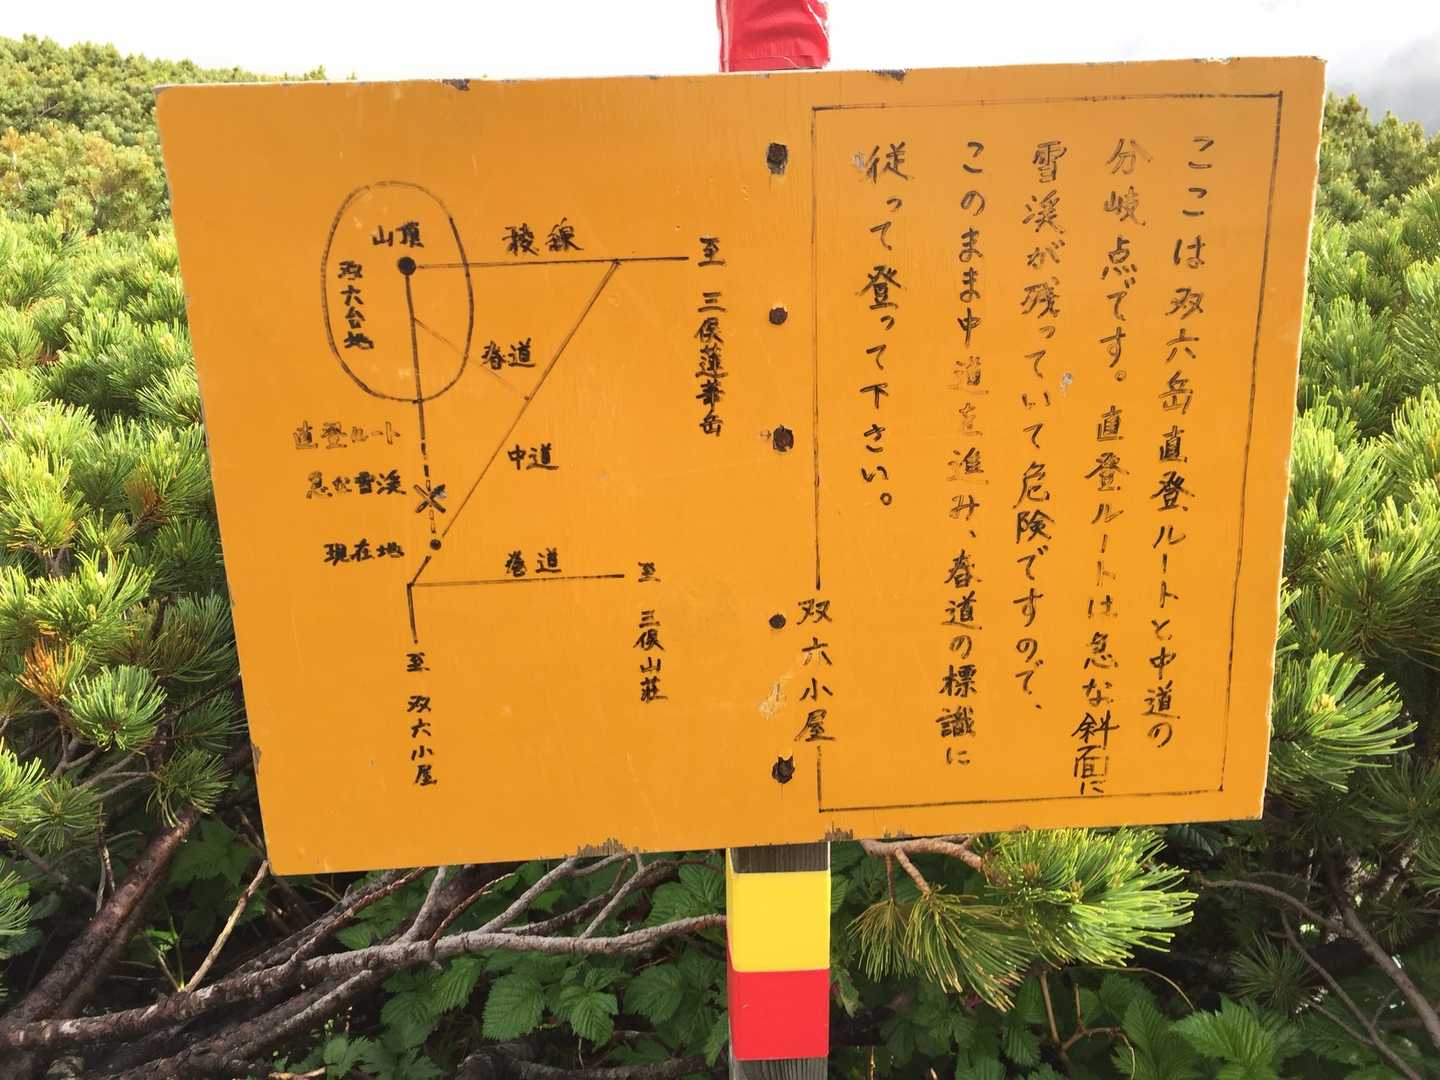 ここは双六岳直登ルートと中道の
分岐点です。直登ルートは急な斜面に
雪渓が残っていて危険ですので、
このまま中道を進み、春道の標識に
従って登って下さい。
双六小屋
山頂
双六台地
稜線
至 三俣蓮華岳
春道
直登ルート
急な雪渓
中道
現在地
巻道
至 三俣山荘
至 双六小屋